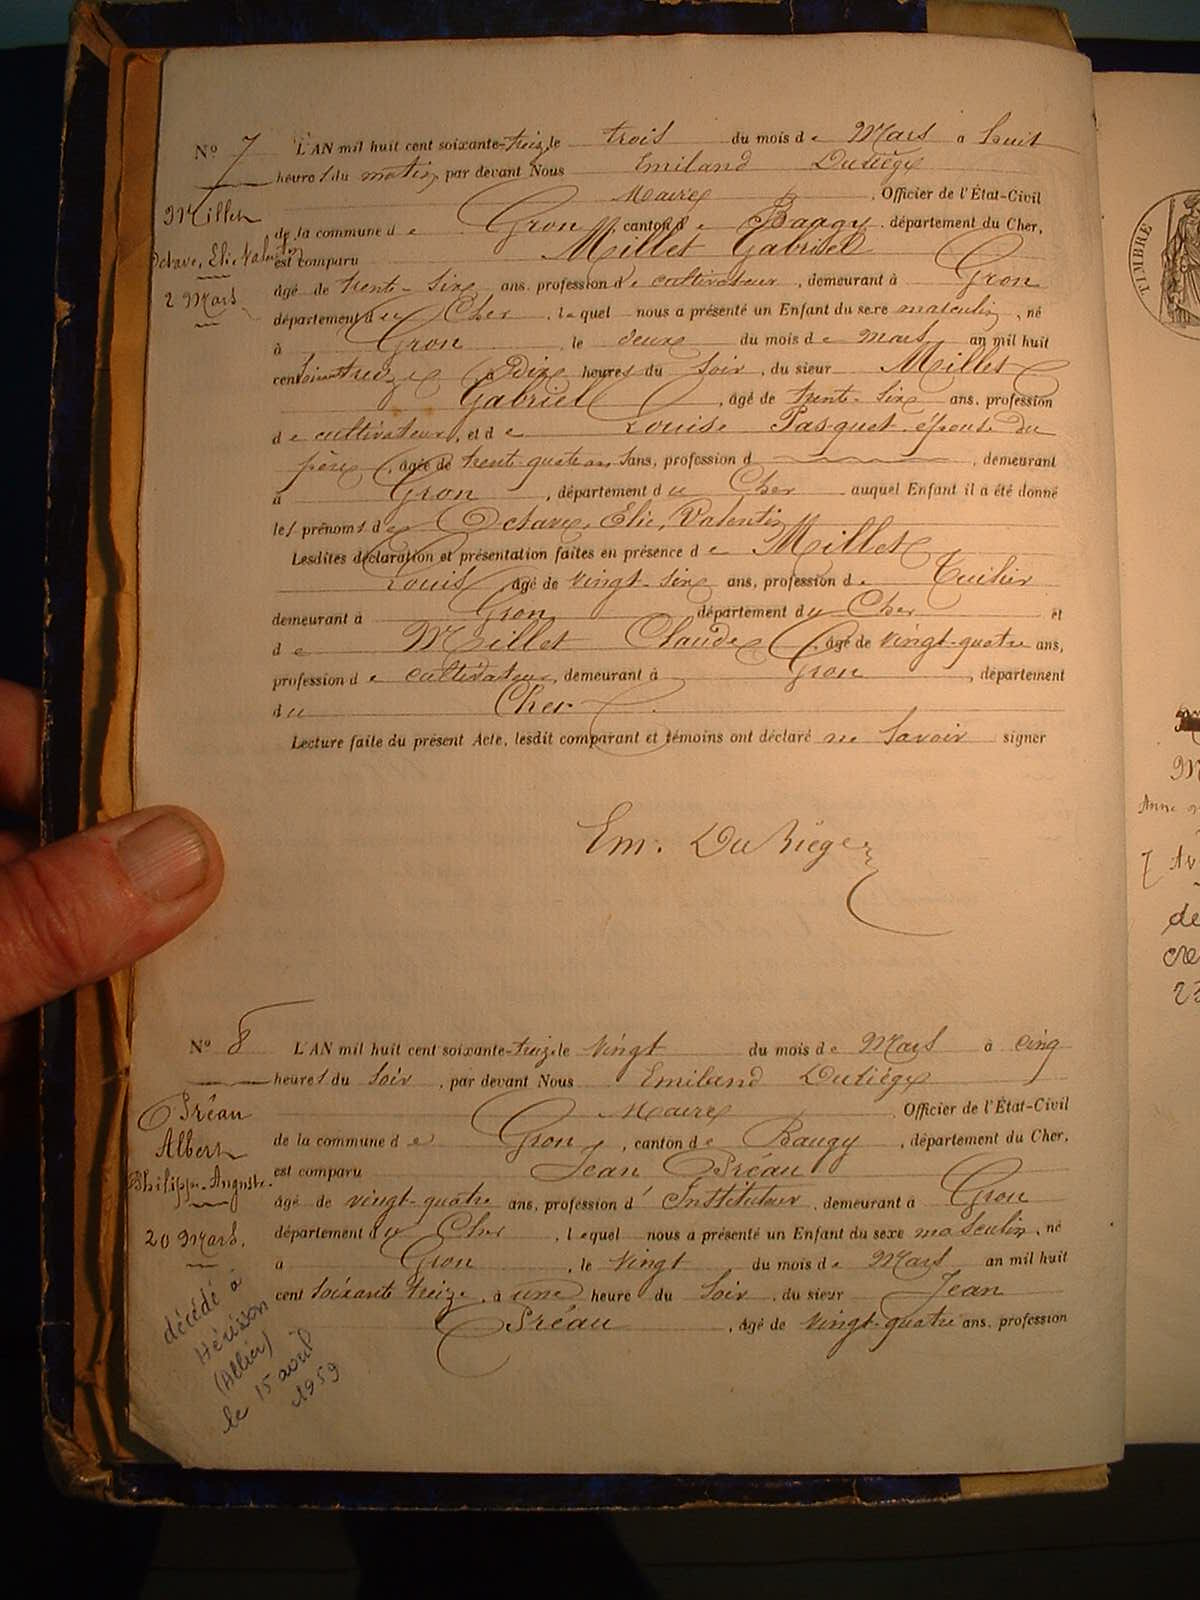 N° 7 L'AN mil huit cent soixante-treize le trois du mois de Mars à huit
heures du matin, par devant Nous Emiland Dutiège
Maire, Officier de l'État-Civil
de la commune de Gron, canton de Baugy, département du Cher,
est comparu Millet Gabriel
âgé de trente-six ans, profession de cultivateur, demeurant à Gron
département du Cher, lequel nous a présenté un Enfant du sexe masculin, né
à Gron, le deux du mois de mars an mil huit
cent soixante treize, à Dix heures du soir, du sieur Millet
Gabriel, âgé de trente-six ans, profession
de cultivateur, et de Louise Pasquet, épouse du
père, âgée de trente-quatre ans, profession d , demeurant
à Gron, département du Cher auquel Enfant il a été donné
les prénoms de Octave, Elie, Valentin
Lesdites déclaration et présentation faites en présence de Millet
Louis, âgé de vingt-six ans, profession de Tuilier
demeurant à Gron département du Cher et
de Millet Claude, âgé de vingt-quatre ans,
profession de cultivateur, demeurant à Gron, département
du Cher.
Lecture faite du présent Acte, lesdit comparant et témoins ont déclaré ne savoir signer
Em.
Millet
Octave, Elie Valentin
2 Mars
N° 8 L'AN mil huit cent soixante-treize le vingt du mois de Mars à cinq
heures du soir, par devant Nous Emiland Dutiège
Maire, Officier de l'État-Civil
de la commune de Gron, canton de Baugy, département du Cher,
est comparu Jean Préau
âgé de vingt-quatre ans, profession d'Instituteur, demeurant à Gron
département du Cher, lequel nous a présenté un Enfant du sexe masculin, né
à Gron, le vingt du mois de Mars an mil huit
cent soixante treize, à une heure du soir, du sieur Jean
Préau, âgé de vingt-quatre ans, profession
Préau
Albert
Philippe-Auguste.
20 Mars.
décédé à
Hérisson
(Allier)
le 15 avril
1959
TIMBRE
Anne
7 Av
de
23